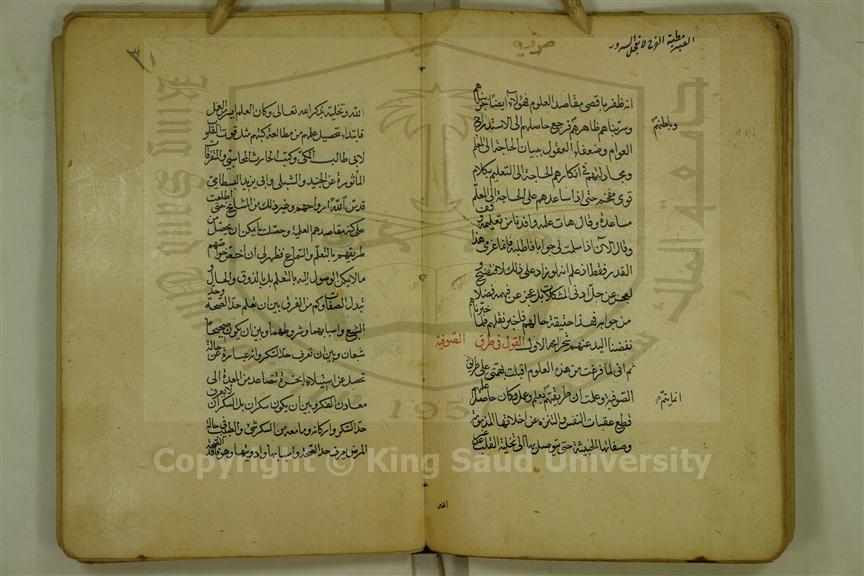 الصبر مطية الفرج لا تعجل السرور
صوفية
انه ظفر باقصى مقاصد العلوم فهؤلاء ايضا جربناهم
وسبرنا هم ظاهرهم فرجع حاصلهم الى الاستدراج
وباطنهم
العوام وضعفاء العقول ببيان الحاجة الى المعلم
ومجادلتهم فى انكارهم الحاجة الى التعليم بكلام
قوى مفحم حتى اذا ساعدهم على الحاجة الى المعلم
مساعد وقال هات علمه وافدنا من تعليمه وقف
وقال الآن اذا سلمت لى هذا فاطلبه فانما غرضى هذا
القدر فقط اذ علم انه لو زاد على ذلك لافتضح
لعجز عن حل ادنى المشكلات بل عجز عن فهمه فضلا
من جوابه فهذا حقيقة حالهم فلما خبرناهم
نفضنا اليد عنهم القول فى طرق الصوفية
ثم انى لما فرغت من هذه العلوم اقبلت بهمتى على طريق
الصوفية وعلمت ان طريقتهم بعلم وعمل وكان حاصل علمهم
انما يتم
قطع عقبات النفس والتنزه عن اخلاقها الذميمة
وصفاتها الخبيثة حتى يتوصل بها الى تخلية القلب عن غير
الله
الله وتحليته بذكر الله تعالى وكان العلم ايسر من العمل
فابتداء بتحصيل علمهم من مطالعة كتبهم مثل قوت القلوب
لابى طالب المكى وكتب الحارث المحاسبى والمتفرقات
المأثورة عن الجنيد والشبلى وابى يزيد البسطامى
قدس الله ارواحهم وغير ذلك من المشايخ حتى اطلعت
على كنه مقاصدهم العلمية وحصلت ما يمكن ان يحصل من
طريقهم بالتعلم والسماع فظهر لى ان اخص خواصهم
ما لا يمكن الوصول اليه بالتعلم بل بالذوق والحال و
تبدل الصفات وكم من الفرق بين ان تعلم حد الصحة وحد
الشبع واسبابهما وشروطهما وبين ان يكون صحيحا
شبعان وبين ان تعرف حد السكر وانه عبارة عن حالة
تحصل عن استيلاء ابخرة تتصاعد من المعدة الى
معادن الفكر وبين ان يكون سكران بل السكران لا يعرف
حد السكر واركانه وما معه من السكر شئ والطبيب فى حالة
المرض يعرف حد الصحة واسبابها وادويتها وهو فاقد الصحة